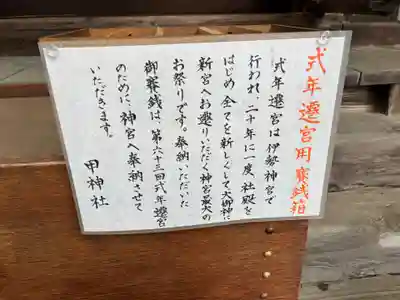 式年遷宮用賽銭箱
式年遷宮は伊勢神宮で
行われ、二十年に一度社殿を
はじめ全てを新しくして大御神に
新宮へお遷りいただく神宮最大の
お祭りです。奉納いただいた
御賽銭は、第六十三回式年遷宮
のために、神宮へ奉納させて
いただきます。
甲神社